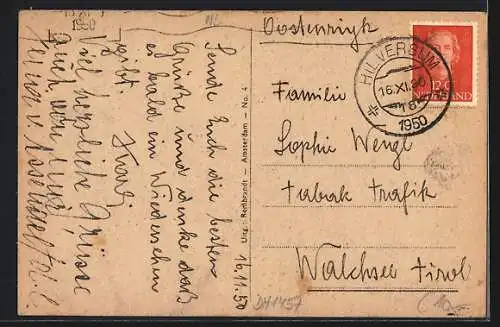 16.XI.
1950
Oesterreich
HILVERSUM
16.XI.50
1950
NEDERLAND
Familie
Sophie Wengl
tabak trafik
Walchsee Tirol
Sende Euch die besten
Grüsse und denke daß
es bald ein Wiedersehen
gibt.
Viel herzliche Grüsse
auch von
16/11.50
Uitg.: Rembrandt - Amsterdam - No. 4
DH1457